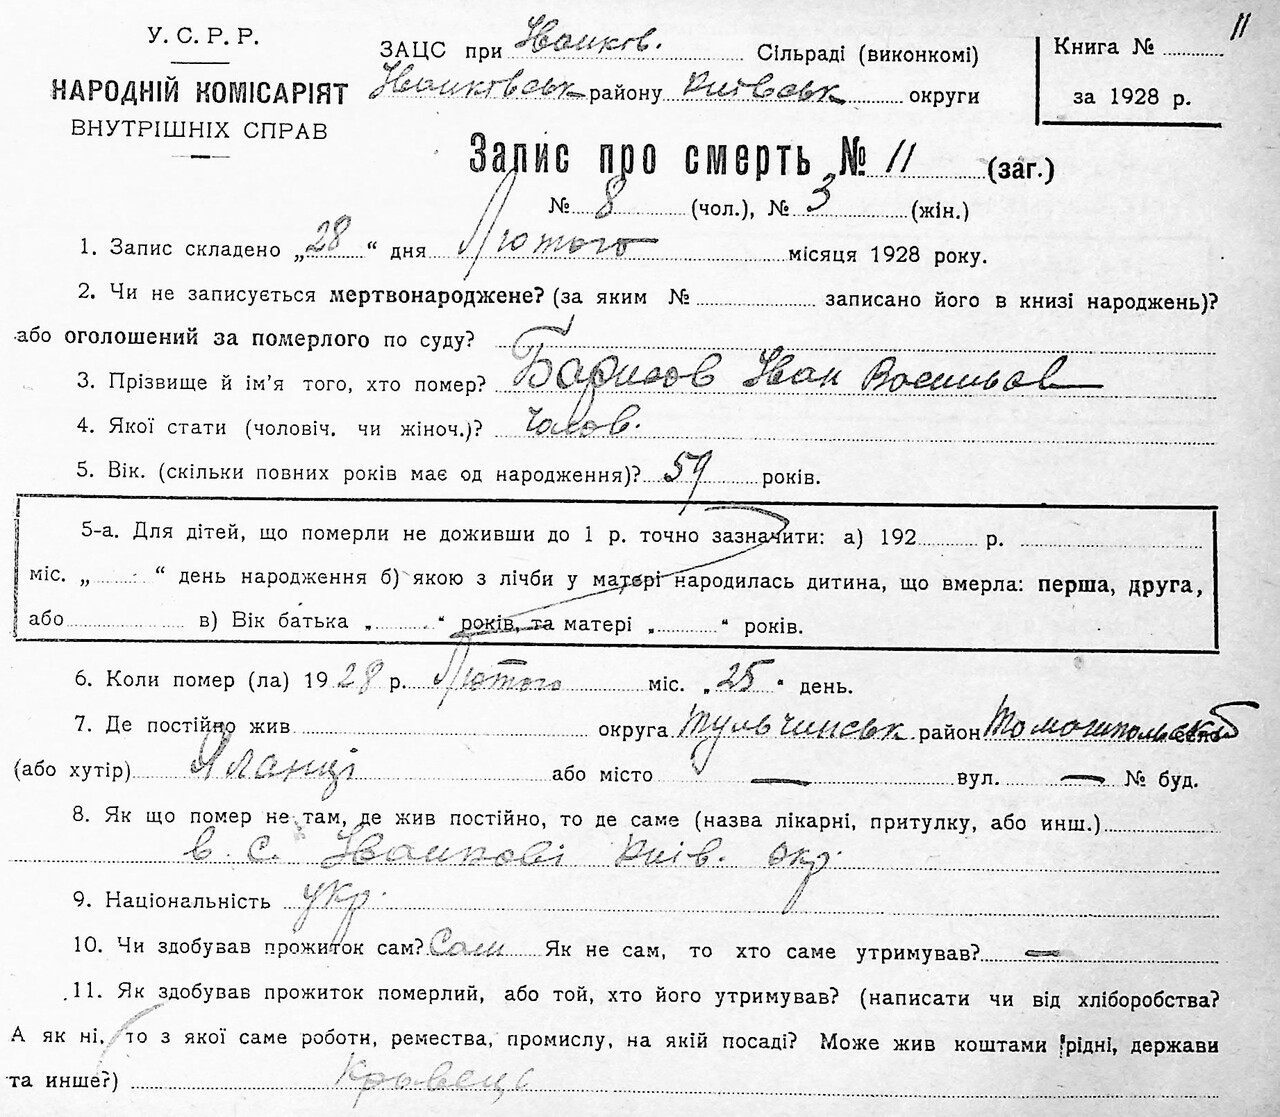 11
У. С. Р. Р.
НАРОДНІЙ КОМІСАРІЯТ
ВНУТРІШНІХ СПРАВ
ЗАЦС при Іванков. Сільраді (виконкомі)
Іванківськ району Київськ округи
Книга №
за 1928 р.
Запис про смерть № 11 (заг.)
№ 8 (чол.), № 3 (жін.)
1. Запис складено „28“ дня Лютого місяця 1928 року.
2. Чи не записується мертвонароджене? (за яким № записано його в книзі народжень)?
або оголошений за померлого по суду?
3. Прізвище й ім’я того, хто помер? Борисов Іван Васильов
4. Якої стати (чоловіч. чи жіноч.)? Чолов.
5. Вік. (скільки повних років має од народження)? 59 років.
5-а. Для дітей, що померли не доживши до 1 р. точно зазначити: а) 192 р.
міс. „ “ день народження б) якою з лічби у матері народилась дитина, що вмерла: перша, друга,
або в) Вік батька „ “ років, та матері „ “ років.
6. Коли помер (ла) 1928 р. Лютого міс. „25“ день.
7. Де постійно жив округа Тульчинськ район Томашпольский село
(або хутір) Яланці або місто — вул. — № буд.
8. Як що помер не там, де жив постійно, то де саме (назва лікарні, притулку, або инш.)
в с. Іванкові Київ. окр.
9. Національність укр.
10. Чи здобував прожиток сам? Сам Як не сам, то хто саме утримував? —
11. Як здобував прожиток померлий, або той, хто його утримував? (написати чи від хліборобства?
А як ні, то з якої саме роботи, ремества, промислу, на якій посаді? Може жив коштами рідні, держави
та инше?) Кравець